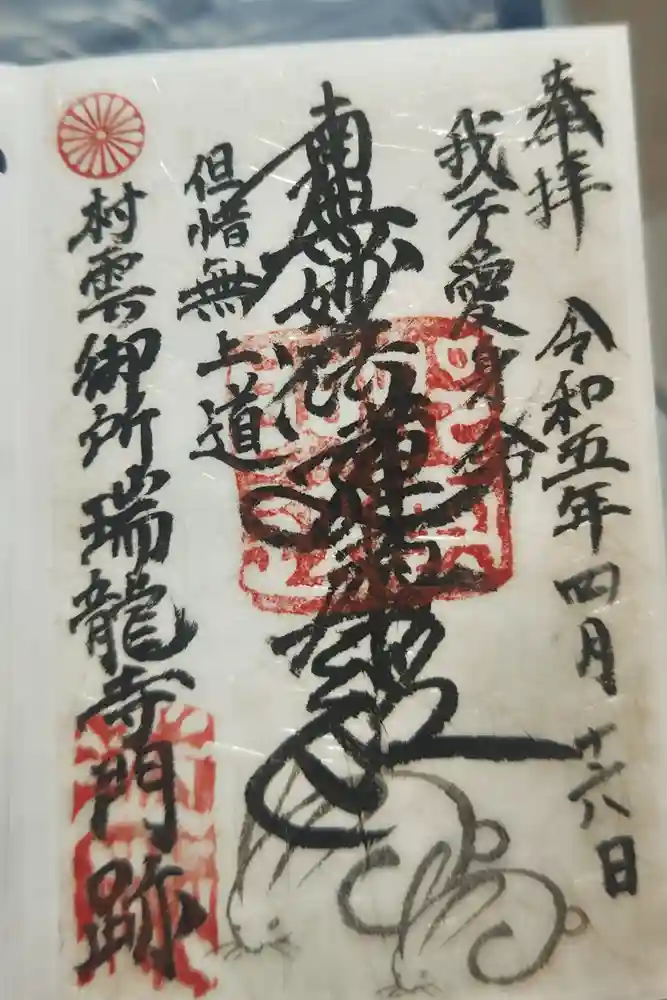 奉拝 令和五年四月廿八日
我不愛身命
南無妙法蓮華経
但惜無上道
村雲御所瑞龍寺門跡